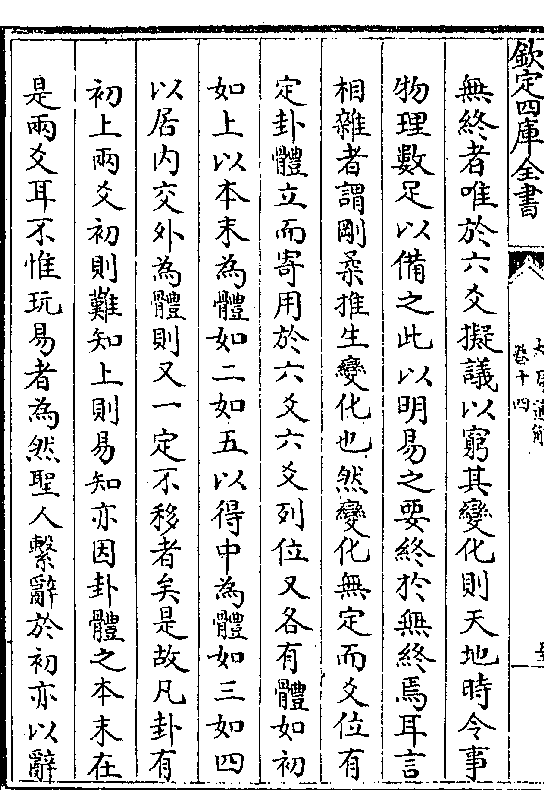 欽定四庫全書
卷十四
無終者唯於六爻擬議以窮其變化則天地時令事
物理數足以備之此以明易之要終於無終焉耳言
相雜者謂剛柔推生變化也然變化無定而爻位有
定卦體立而寄用於六爻六爻列位又各有體如初
如上以本末為體如二如五以得中為體如三如四
以居内交外為體則又一定不移者矣是故凡卦有
初上兩爻初則難知上則易知亦因卦體之本末在
是兩爻耳不惟玩易者為然聖人繫辭於初亦以辭